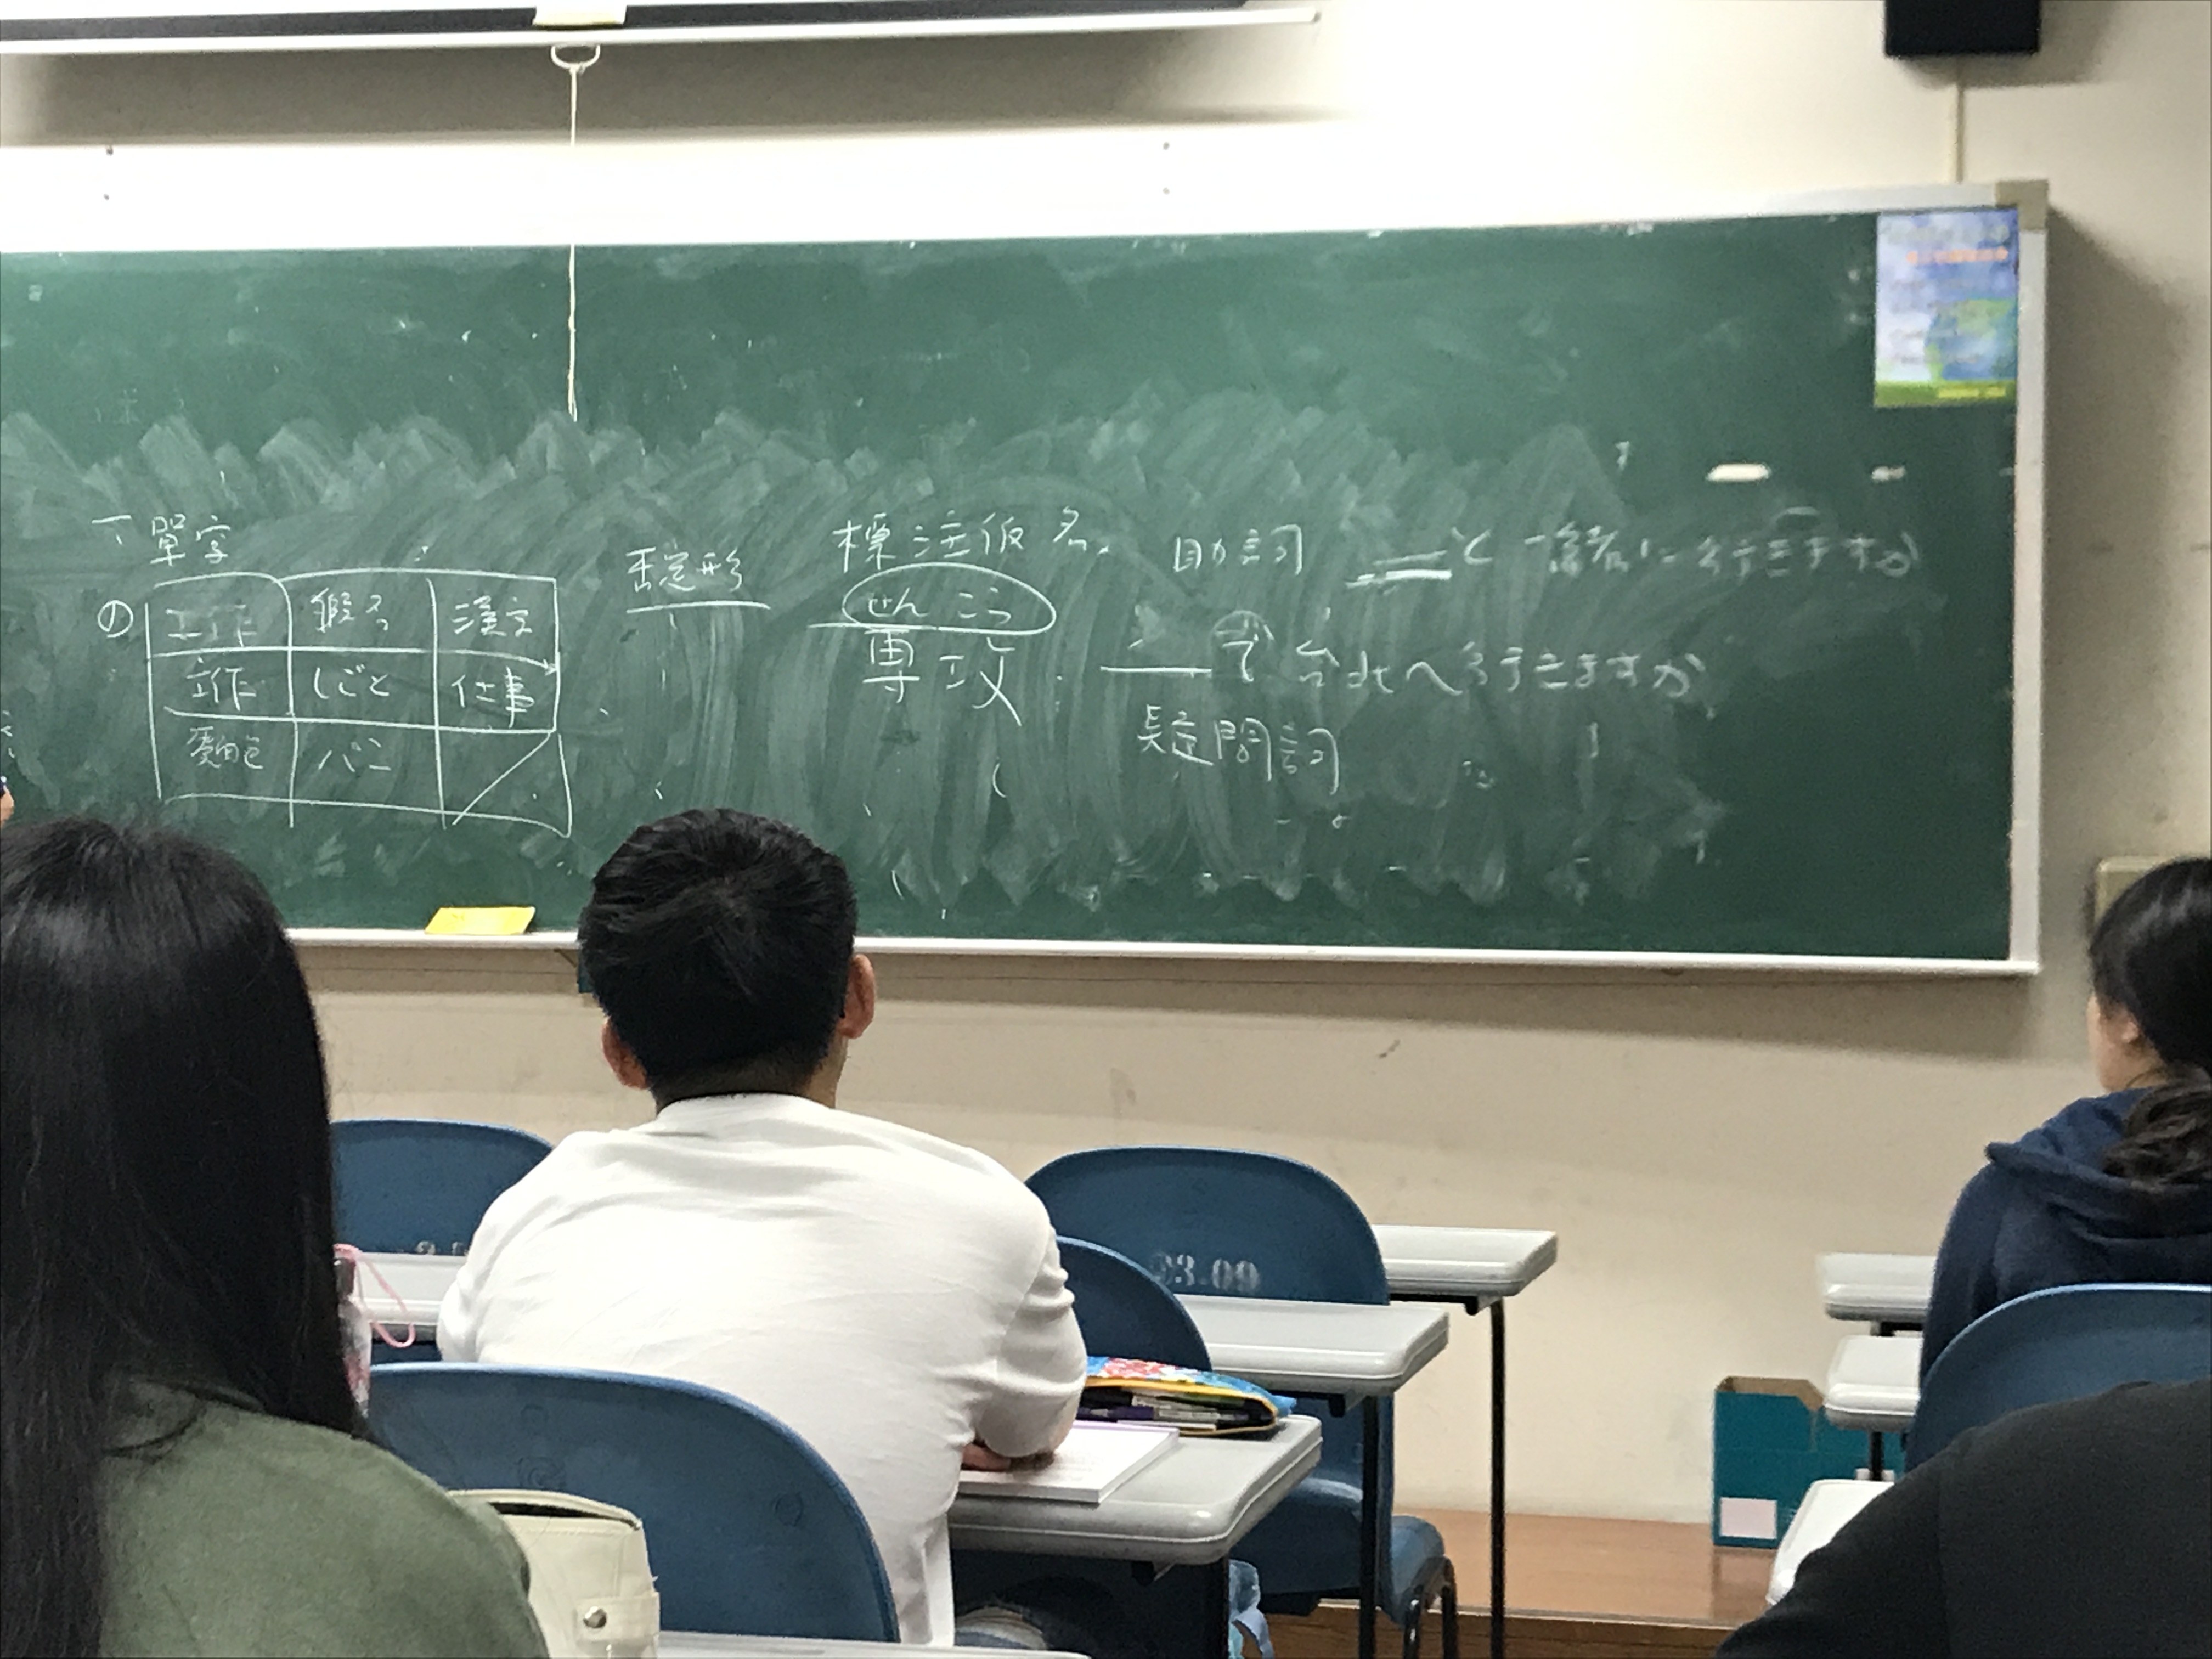 一、單字
の
工作 假名 漢字
工作 しごと 仕事
麵包 パン
標注仮名
せんこう
専攻
助詞
と一緒に行きますか
で台北へ行きますか
疑問詞